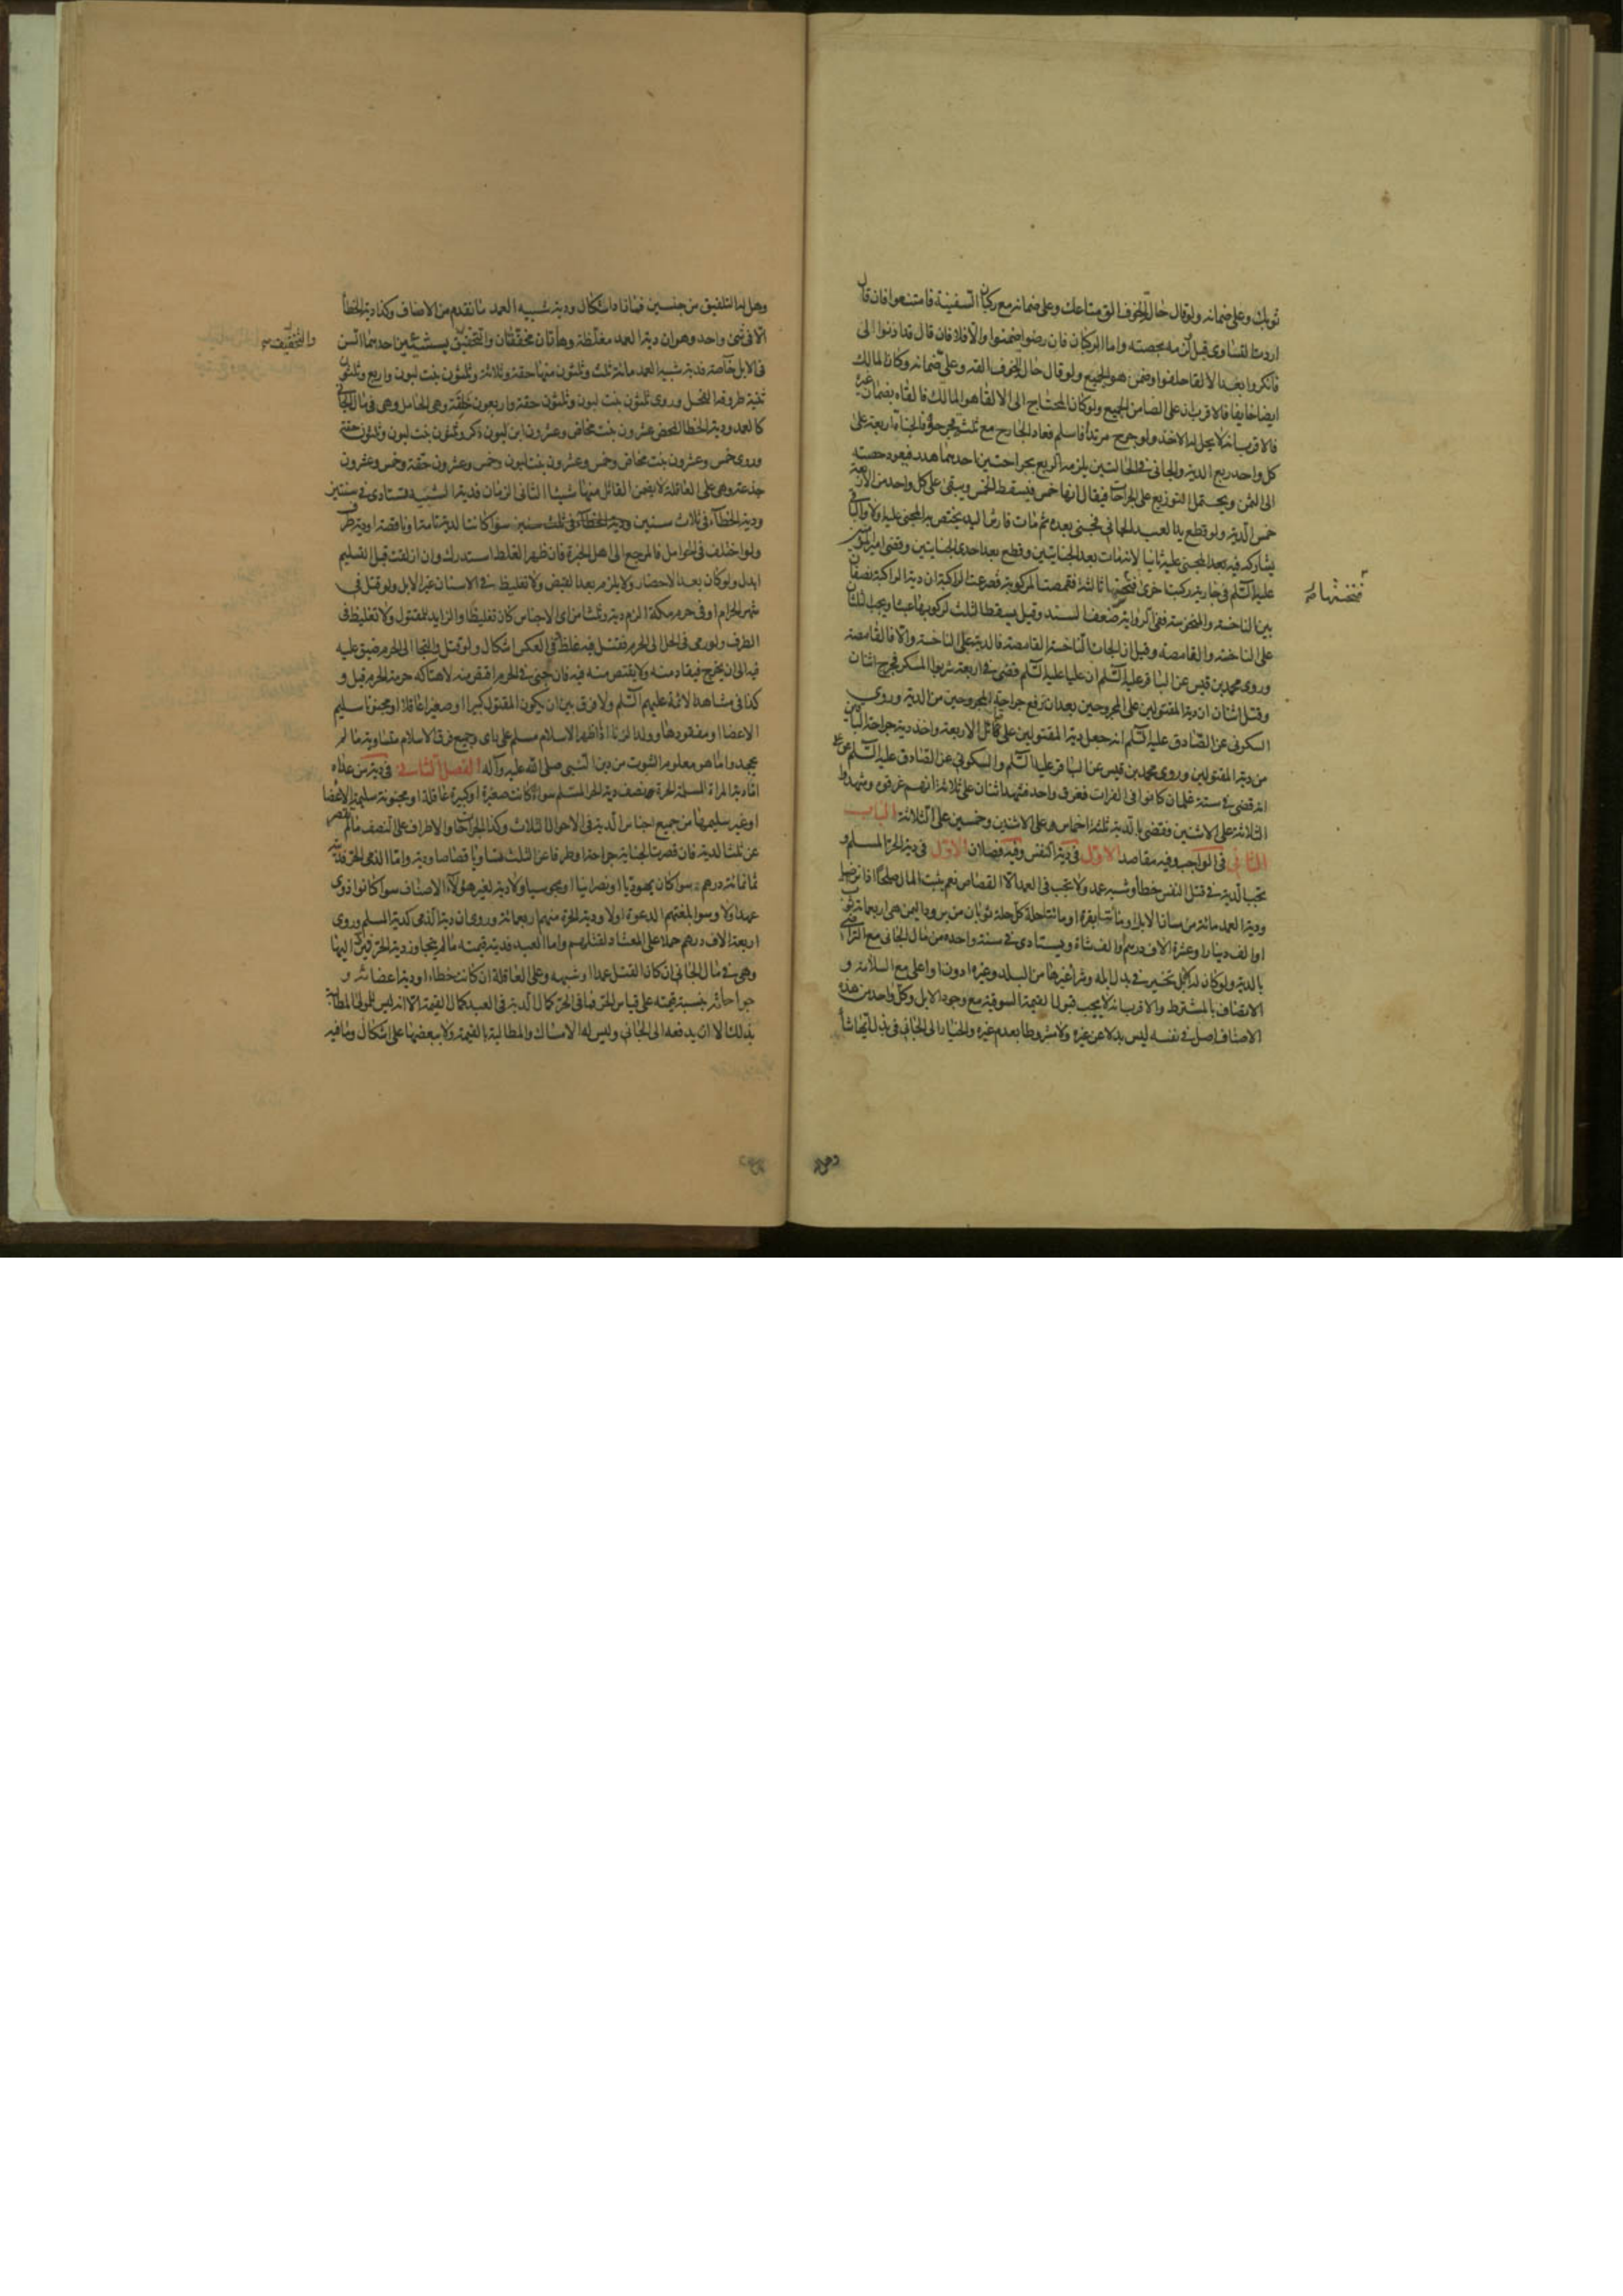 ثوبك وعلى ضمانه ولو قال حال الخوف الق متاعك وعلى ضمانه مع ركبان السفينة فامتنعوا فان قال
اردت التساوى قبل لزمه بحصته واما الركبان فان رضوا ضمنوا والا فلا فان قال قد اذنوا لى
فانكروا بعد الالقا حلفوا وضمن هو الجميع ولو قال حال الخوف القه وعلى ضمانه وكان المالك
ايضا خايفا فالاقرب ان على الضامن الجميع ولو كان المحتاج الى الالقا هو المالك فالقاه بضمان غيره
فالاقرب انه لا يحل له الاخذ ولو جرح مرتدا فاسلم فعاد الجارح مع ثلثة فجرحوه فالجناة اربعة على
كل واحد ربع الدية والجانى فى الحالتين يلزمه الربع بجراحتين احديهما هدر فيعود حصته
الى الثمن ويحتمل التوزيع على الجراحات فيقال انها خمس فيسقط الخمس ويبقى على كل واحد من الاربعة
خمس الدية ولو قطع يد العبد الجانى فجنى بعده ثم مات فارش اليد يختص به المجنى عليه اولا والباقى
يشاركه فيه بعد المجنى عليه ثانيا لانه مات بعد الجنايتين وقطع بعد احدى الجنايتين وقضى امير المؤمنين
عليه السلم فى جارية ركبت اخرى فنخستها ثالثة فقمصت المركوبة فصرعت الراكبة ان دية الراكبة نصفان
فنخستها
بين الناخسة والمنخوسة ففى الرواية ضعف السند وقيل يسقط الثلث لركوبها عبثا ويجب الثلثان
على الناخسة والقامصة وقيل ان الجات الناخسة القامصة فالدية على الناخسة والا فالقامصة
وروى محمد بن قيس عن الباقر عليه السلم ان عليا عليه السلم قضى فى اربعة شربوا المسكر فجرح اثنان
وقتل اثنان ان دية المقتولين على المجروحين بعد ان ترفع جراحة المجروحين من الدية وروى
السكونى عن الصادق عليه السلم انه جعل دية المقتولين على قبائل الاربعة واخذ دية جراحة الباقين
من دية المقتولين وروى محمد بن قيس عن الباقر عليه السلم والسكونى عن الصادق عليه السلم عن على
انه قضى فى ستة غلمان كانوا فى الفرات فغرق واحد فشهد اثنان على ثلاثة انهم غرقوه وشهد
الثلاثة على الاثنين فقضى بالدية ثلثة اخماس على الاثنين وخمسين على الثلاثة الباب
الثانى فى الواجب وفيه مقاصد الاول فى دية النفس وفيه فصلان الاول فى دية الحر المسلم و
تجب الدية فى قتل النفس خطأ وشبيه عمد ولا تجب فى العمد الا القصاص نعم يثبت المال صلحا فان رضيا
ودية العمد مائة من مسان الابل او مأتا بقرة او مائتا حلة كل حلة ثوبان من برود اليمن هى اربعمائة ثوب
او الف دينار او عشرة الاف درهم او الف شاة ويستادى فى سنة واحدة من مال الجانى مع التراضى
بالدية ولو كان له ابل تخير فى بدل ابله وشراء غيرها من البلد وغيره ادون او اعلى مع السلامة و
الاتصاف بالمشترط والاقرب انه لا يجب قبول القيمة السوقية مع وجود الابل وكل واحد من هذه
الاصناف اصل فى نفسه ليس بدلا عن غيره ولا مشروطا بعدم غيره والخيار الى الجانى فى بذل ايها شأ
وهل له التلفيق من جنسين فصاعدا اشكال ودية شبيه العمد ما تقدم من الاصناف وكذا دية الخطأ
الا فى شئ واحد وهو ان دية العمد مغلظة وهاتان مخففتان والتخفيف بشيئين احدهما السن
والتخفيف
فى الابل خاصة فدية شبيه العمد مائة ثلث وثلثون منها حقة وثلاثة وثلثون بنت لبون واربع وثلثون
ثنية طروقة الفحل وروى ثلثون بنت لبون وثلثون حقة واربعون خلفة وهى الحامل وهى فى مال الجانى
كالعمد ودية الخطا المحض عشرون بنت مخاض وعشرون ابن لبون ذكر وثلثون بنت لبون وثلثون حقة
وروى خمس وعشرون بنت مخاض وخمس وعشرون بنت لبون وخمس وعشرون حقة وخمس وعشرون
جذعة وهى على العاقلة لا يضمن القاتل منها شيئا الثانى الزمان فدية الشبيه تستادى فى سنتين
ودية الخطاء فى ثلاث سنين ودية الخطاء فى ثلث سنين سوا كانت الدية تامة او ناقصة او دية طرف
ولو اختلف فى الحوامل فالمرجع الى اهل الخبرة فان ظهر الغلط استدرك وان ازلقت قبل التسليم
ابدل ولو كان بعد الاحضار ولا يلزم بعد القبض ولا تغليظ فى الاسنان غير الابل ولو قتل فى
شهر الحرام او فى حرم مكة الزم دية وثلثا من اى الاجناس كان تغليظا والزايد للمقتول ولا تغليظ فى
الطرف ولو رمى فى الحل الى الحرم فقتل فيه غلظ وفى العكس اشكال ولو قتل والتجا الى الحرم ضيق عليه
فيه الى ان يخرج فيقاد منه ولا يقتص منه فيه فان جنى فى الحرم اقتص منه لانتهاكه حرمة الحرم قيل و
كذا فى مشاهد الائمة عليهم السلم ولا فرق بين ان يكون المقتول كبيرا او صغيرا عاقلا او مجنونا سليم
الاعضا او مفقودها وولد الزنا اذا ظهر الاسلام مسلم على راى وجميع فرق الاسلام متساوية ما لم
يجحد وا ما هو معلوم الثبوت من دين النبى صلى الله عليه وآله الفصل الثانى فى دية من عداه
اما دية المراة المسلمة الحرة فنصف دية الحر المسلم سواء كانت صغيرة او كبيرة عاقلة او مجنونة سليمة الاعضا
او غير سليمها من جميع اجناس الدية فى الاحوال الثلاث وكذا الجراحات والاطراف على النصف ما لم تقصر
عن ثلث الدية فان قصرت الجناية جراحة او طرفا عن الثلث تساويا قصاصا ودية واما الذمى الحر فديته
ثمانمائة درهم سوا كان يهوديا او نصرانيا او مجوسيا ولا دية لغير هؤلاء الاصناف سوا كانوا ذوى
عهد او لا وسوا بلغتهم الدعوة او لا ودية الحرة منهم اربعمائة وروى ان دية الذمى كدية المسلم وروى
اربعة الاف درهم حملا على المعتاد لقتلهم واما العبد فديته قيمته ما لم يتجاوز دية الحر فيرد اليها
وهى فى مال الجانى ان كان القتل عمدا او شبيهه وعلى العاقلة ان كانت خطاء او دية اعضائه و
جراحاته بنسبة قيمته على قياس الحر فما فى الحر كمال الدية فى العبد كمال القيمة الا انه ليس للمولى المطالبة
بذلك الا ان يدفعه الى الجانى وليس له الامساك والمطالبة بالقيمة ولا ببعضها على اشكال وما فيه